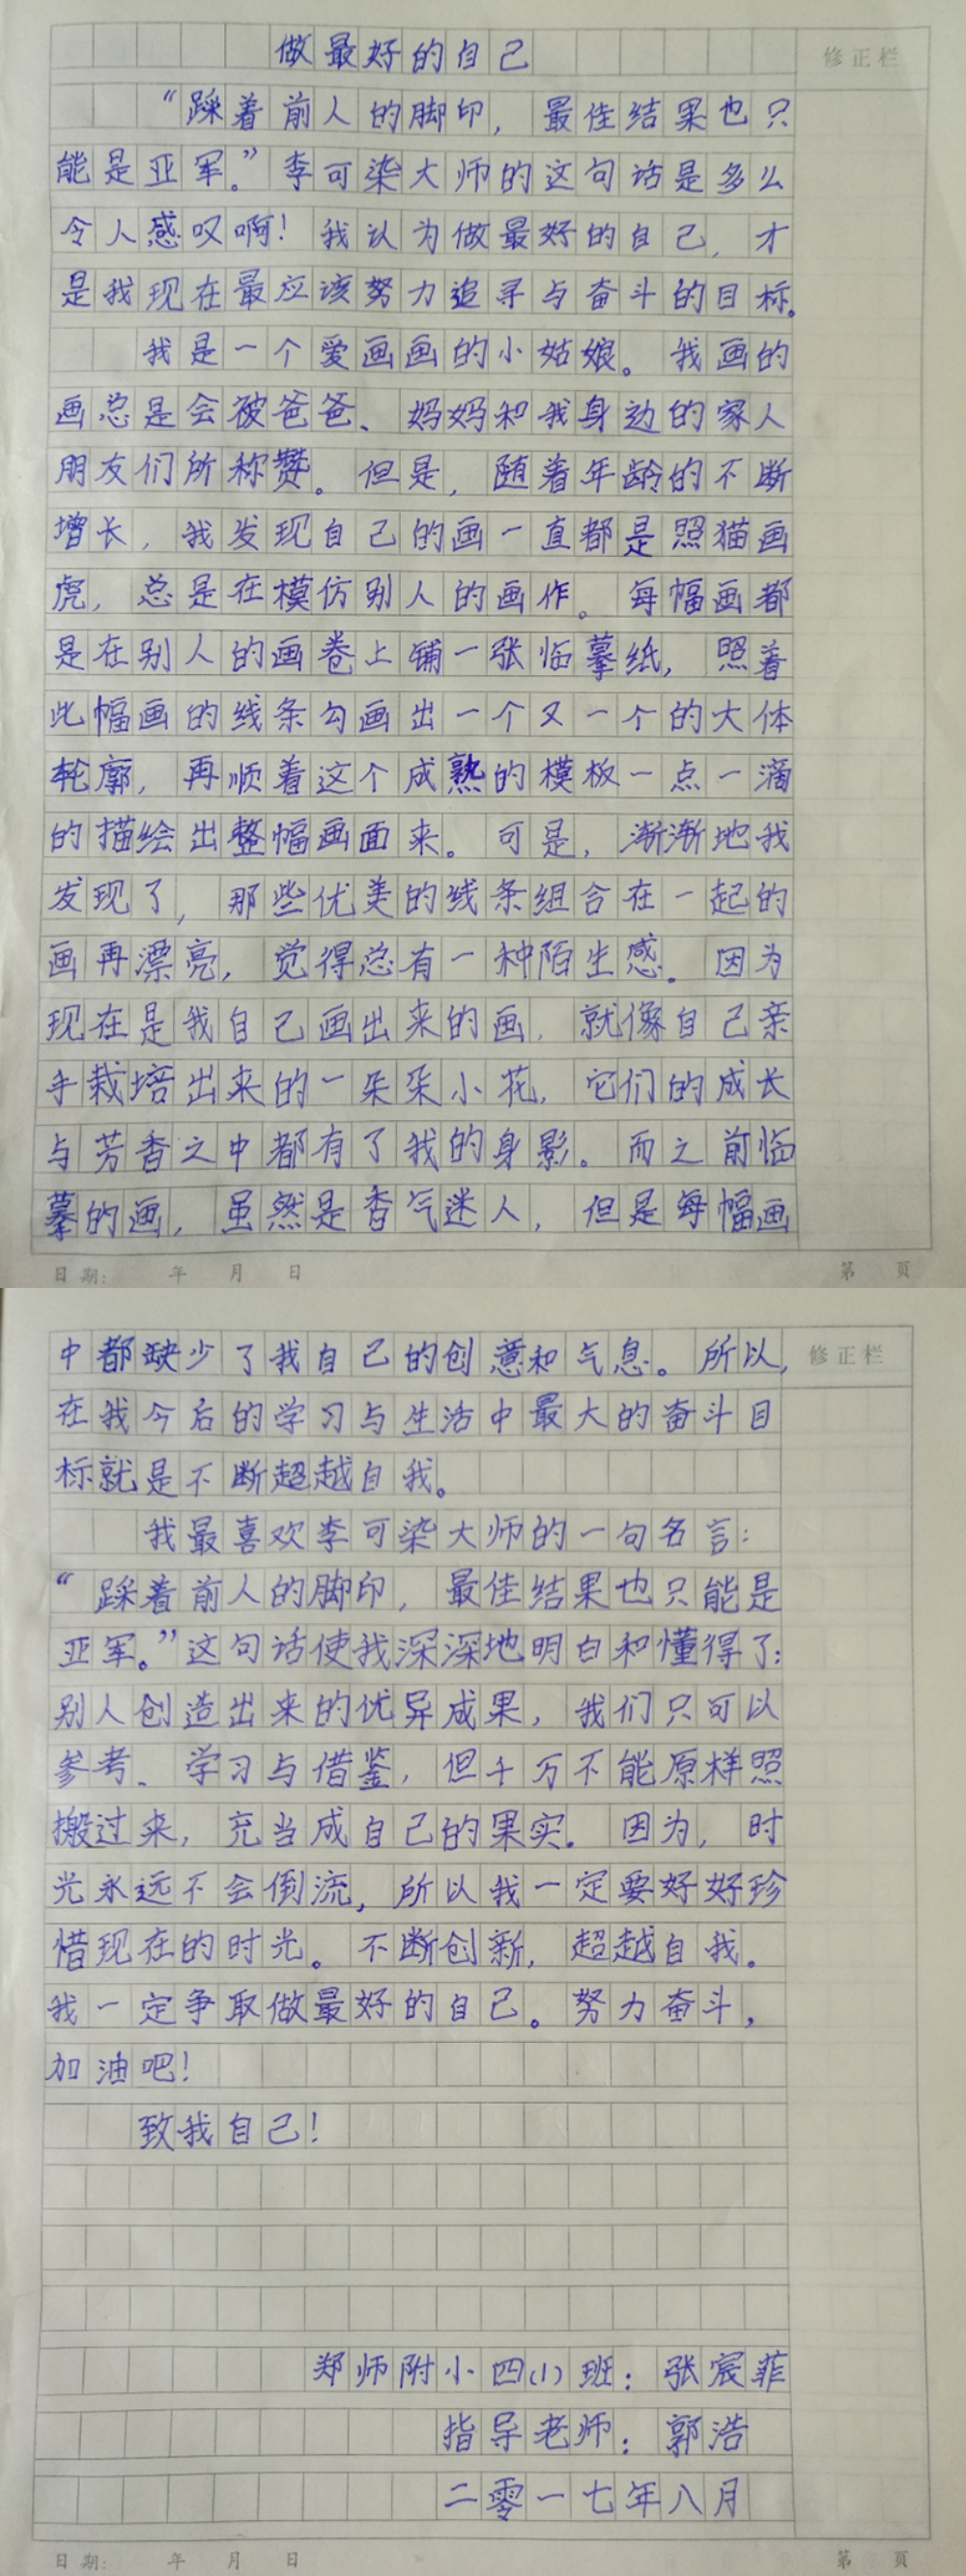 做最好的自己
修正栏
“踩着前人的脚印，最佳结果也只
能是亚军。”李可染大师的这句话是多么
令人感叹啊！我认为做最好的自己，才
是我现在最应该努力追寻与奋斗的目标。
我是一个爱画画的小姑娘。我画的
画总是会被爸爸、妈妈和我身边的家人
朋友们所称赞。但是，随着年龄的不断
增长，我发现自己的画一直都是照猫画
虎，总是在模仿别人的画作。每幅画都
是在别人的画卷上铺一张临摹纸，照着
此幅画的线条勾画出一个又一个的大体
轮廓，再顺着这个成熟的模板一点一滴
的描绘出整幅画面来。可是，渐渐地我
发现了，那些优美的线条组合在一起的
画再漂亮，觉得总有一种陌生感。因为
现在是我自己画出来的画，就像自己亲
手栽培出来的一朵朵小花，它们的成长
与芳香之中都有了我的身影。而之前临
摹的画，虽然是香气迷人，但是每幅画
日期： 年 月 日 第 页
中都缺少了我自己的创意和气息。所以，
修正栏
在我今后的学习与生活中最大的奋斗目
标就是不断超越自我。
我最喜欢李可染大师的一句名言：
“踩着前人的脚印，最佳结果也只能是
亚军。”这句话使我深深地明白和懂得了：
别人创造出来的优异成果，我们只可以
参考、学习与借鉴，但千万不能原样照
搬过来，充当成自己的果实。因为，时
光永远不会倒流，所以我一定要好好珍
惜现在的时光。不断创新，超越自我。
我一定争取做最好的自己。努力奋斗，
加油吧！
致我自己！
郑师附小四(1)班：张宸菲
指导老师：郭浩
二零一七年八月
日期： 年 月 日 第 页